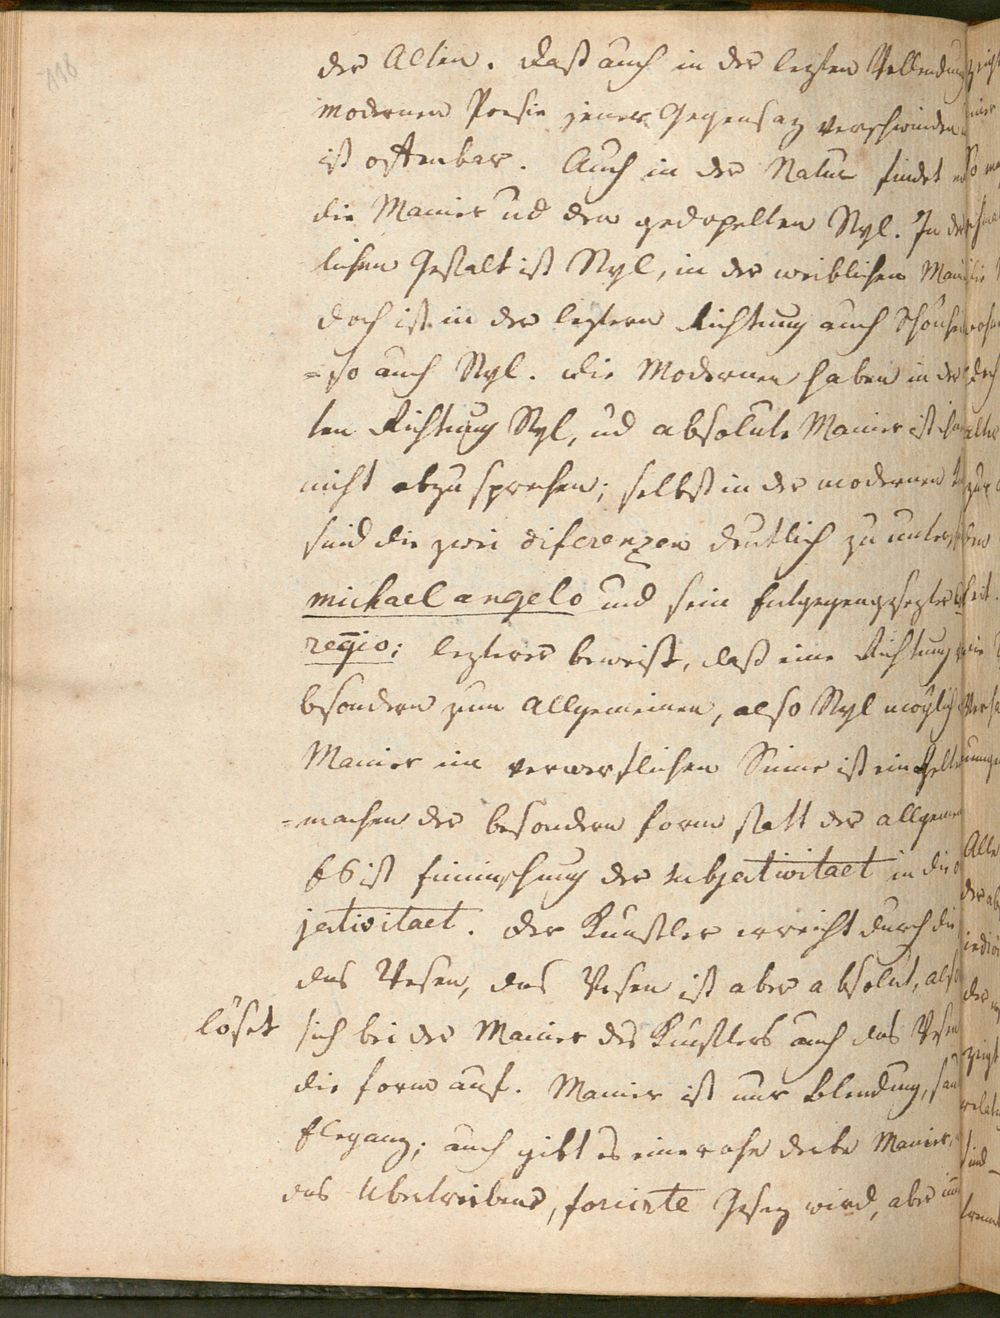 118
der Alten. Daß auch in der lezten Vollendung
modernen Poesie jener Gegensaz verschwinden
ist offenbar. Auch in der Natur findet
die Manier ud den gedopelten Styl. In der
lichen Gestalt ist Styl, in der weiblichen Mani
doch ist in der leztern Richtung auch Schönhei
= so auch Styl. Die Modernen haben in der
ten Richtung Styl, ud absolute Manier ist ihn
nicht abzusprechen; selbst in der modernen
sind die zwei diferenzen deutlich zu unters
michael angelo und sein Entgegengesezter
regio; lezterer beweist, daß eine Richtung
bsondern zum Allgemeinen, also Styl möglich
Manier im verwerflichen Sinne ist ein Gelte
=machen der besondern Form statt der allgemei
Es ist Einmischung der subjectivitaet in die
jectivitaet. Der Künstler erreicht durch die
das Wesen, das Wesen ist aber absolut, also
löset sich bei der Manier des Künstlers auch das Wesen
die Form auf. Manier ist nur Blendung,
Eleganz; auch gibt es eine rohe derbe Manier,
das Ubertriebene, forcirte Gesez wird, aber